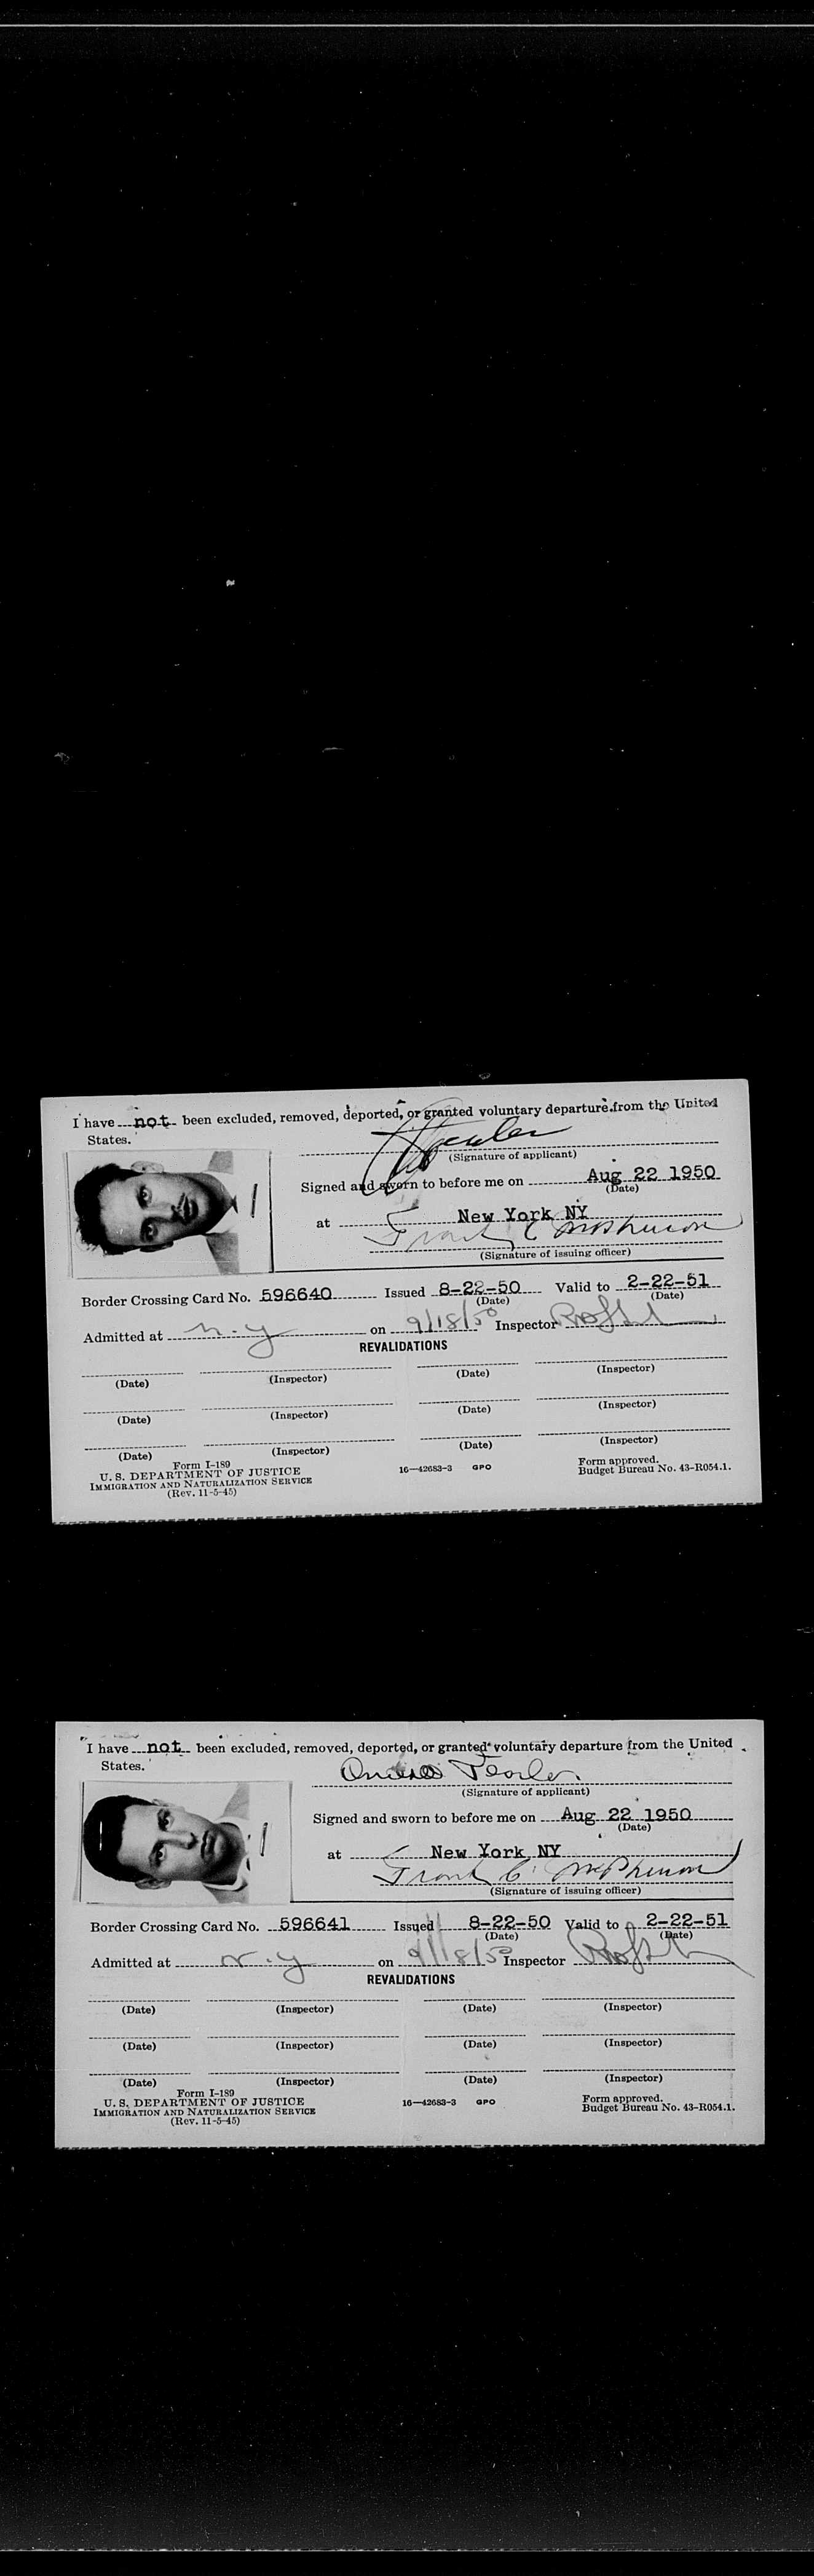 I have not been excluded, removed, deported, or granted voluntary departure from the United
States.
(Signature of applicant)
Signed and sworn to before me on Aug 22 1950
(Date)
at New York NY
Frank C McPherson
(Signature of issuing officer)
Border Crossing Card No. 596640 Issued 8-22-50 Valid to 2-22-51
(Date) (Date)
Admitted at N.Y on 9/18/50 Inspector
REVALIDATIONS
(Date) (Inspector) (Date) (Inspector)
(Date) (Inspector) (Date) (Inspector)
(Date) (Inspector) (Date) (Inspector)
Form I-189
U. S. DEPARTMENT OF JUSTICE
IMMIGRATION AND NATURALIZATION SERVICE
(Rev. 11-5-45)
16—42683-3 GPO
Form approved.
Budget Bureau No. 43-R054.1.
I have not been excluded, removed, deported, or granted voluntary departure from the United
States.
(Signature of applicant)
Signed and sworn to before me on Aug 22 1950
(Date)
at New York NY
Frank C. McPherson
(Signature of issuing officer)
Border Crossing Card No. 596641 Issued 8-22-50 Valid to 2-22-51
(Date) (Date)
Admitted at N.Y on 9/18/50 Inspector
REVALIDATIONS
(Date) (Inspector) (Date) (Inspector)
(Date) (Inspector) (Date) (Inspector)
(Date) (Inspector) (Date) (Inspector)
Form I-189
U. S. DEPARTMENT OF JUSTICE
IMMIGRATION AND NATURALIZATION SERVICE
(Rev. 11-5-45)
16—42683-3 GPO
Form approved.
Budget Bureau No. 43-R054.1.